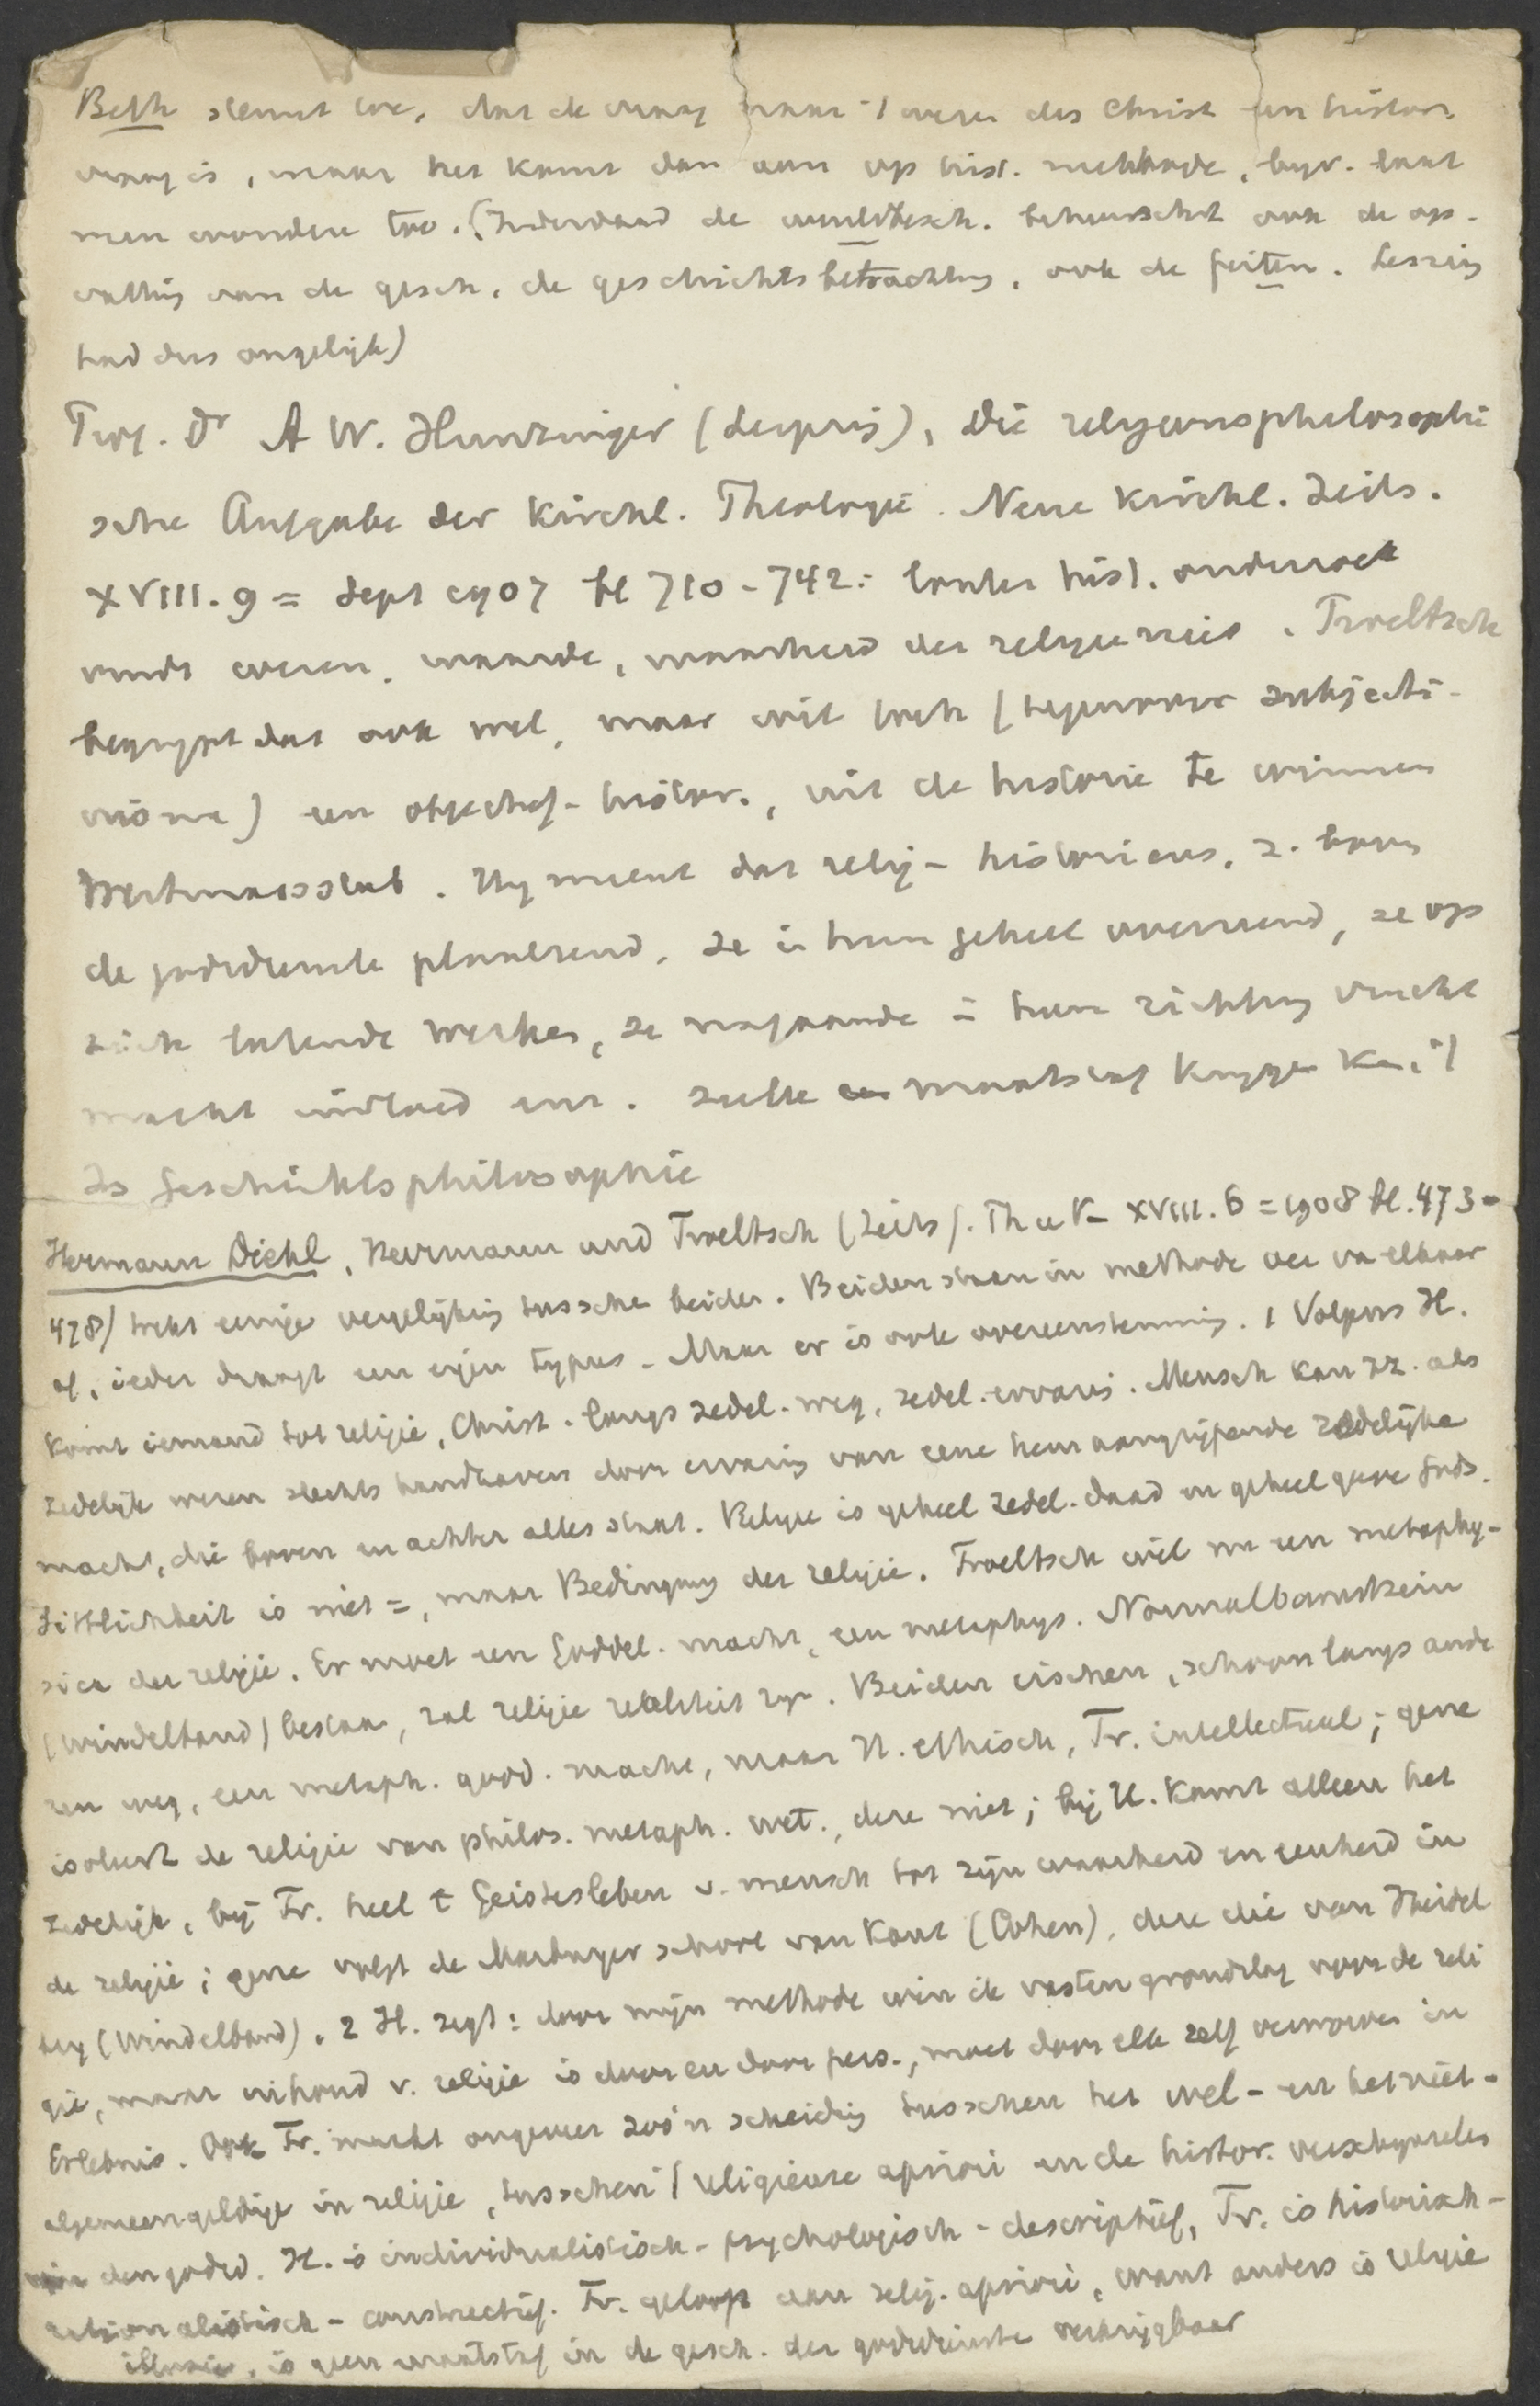 Beth stemt toe, dat de vraag naar 't wezen des Christ een histor.
vraag is, maar het komt dan aan op hist. methode, bijv. laat
men wondere toe. (Inderdaad de wereldbesch. beheerscht ook de op-
vatting van de gesch., de geschichtsbetrachtung, ook de feiten. Lessing
had dus ongelijk)
Prof. Dr A W. Hunzinger (Leipzig), Die religionsphilosophi
sche Aufgabe der Kirchl. Theologie. Neue Kirchl. Zeits.
XVIII. 9 = Sept 1907 bl 710-742: louter hist. onderzoek
vindt wezen, waarde, waarheid der religie niet. Troeltsch
begrypt dat ook wel, maar wil toch (tegenover subjecti-
visme) een objectief-histor., uit de historie te winnen
Wertmassstab. Hy meent dat relig-historicus, z. boven
de godsdienste plaatsend, ze in hun geheel overziend, ze op
zich latende werken, ze nagaande in hun richting
macht invloed enz. zulk een maatstaf krygen kan. 't
Is Geschichtsphilosophie
Hermann Diehl, Herrmann und Troeltsch (Zeits f. Th u K XVIII. 6 = 1908 bl. 473-
478) trekt eenige vergelijking tussche beiden. Beiden staan in methode ver van elkaar
af, ieder draagt een eigen typus. Maar er is ook overeenstemming. 1 Volgens H.
komt iemand tot religie, Christ. langs zedel. weg, zedel. ervaring. Mensch kan zz. als
zedelijk wezen slechts handhaven door ervaring van eene hem aangrijpende zedelijke
macht, die boven en achter alles staat. Religie is geheel zedel. daad en geheel gave Gods.
Sittlichkeit is niet =, maar Bedingung der religie. Troeltsch wil nu een metaphy-
sica der religie. Er moet een Goddel. macht, een metaphys. Normalbewustsein
(Windelband) bestaan, zal religie realiteit zyn. Beiden eischen, schoon langs ande
ren weg, een metaph. godd. macht, maar H. ethisch, Tr. intellectueel; gene
isoleert de religie van philos. metaph. wet., deze niet; bij H. komt alleen het
zedelijk, bij Tr. heel t Geistesleben v. mensch tot zijn waarheid en eenheid in
de religie; gene volgt de Marburger school van Kant (Cohen), deze die van Heidel
berg (Windelband). 2 H. zegt: door mijn methode win ik vasten grondslag voor de reli
gie, maar inhoud v. religie is door en door pers., moet door elk zelf verworven in
Erlebnis. Ook Tr. maakt ongeveer zoo'n scheiding tusschen het wel- en het niet-
algemeengeldige in religie, tusschen 't religieuze apriori en de histor. verschynselen
den godsd. H. is individualistisch-psychologisch-descriptief, Tr. is historisch-
rationalistisch-constructief. Tr. gelooft aan relig. apriori, want anders is religie
illusie, is geen maatstaf in de gesch. der godsdienste verkrijgbaar